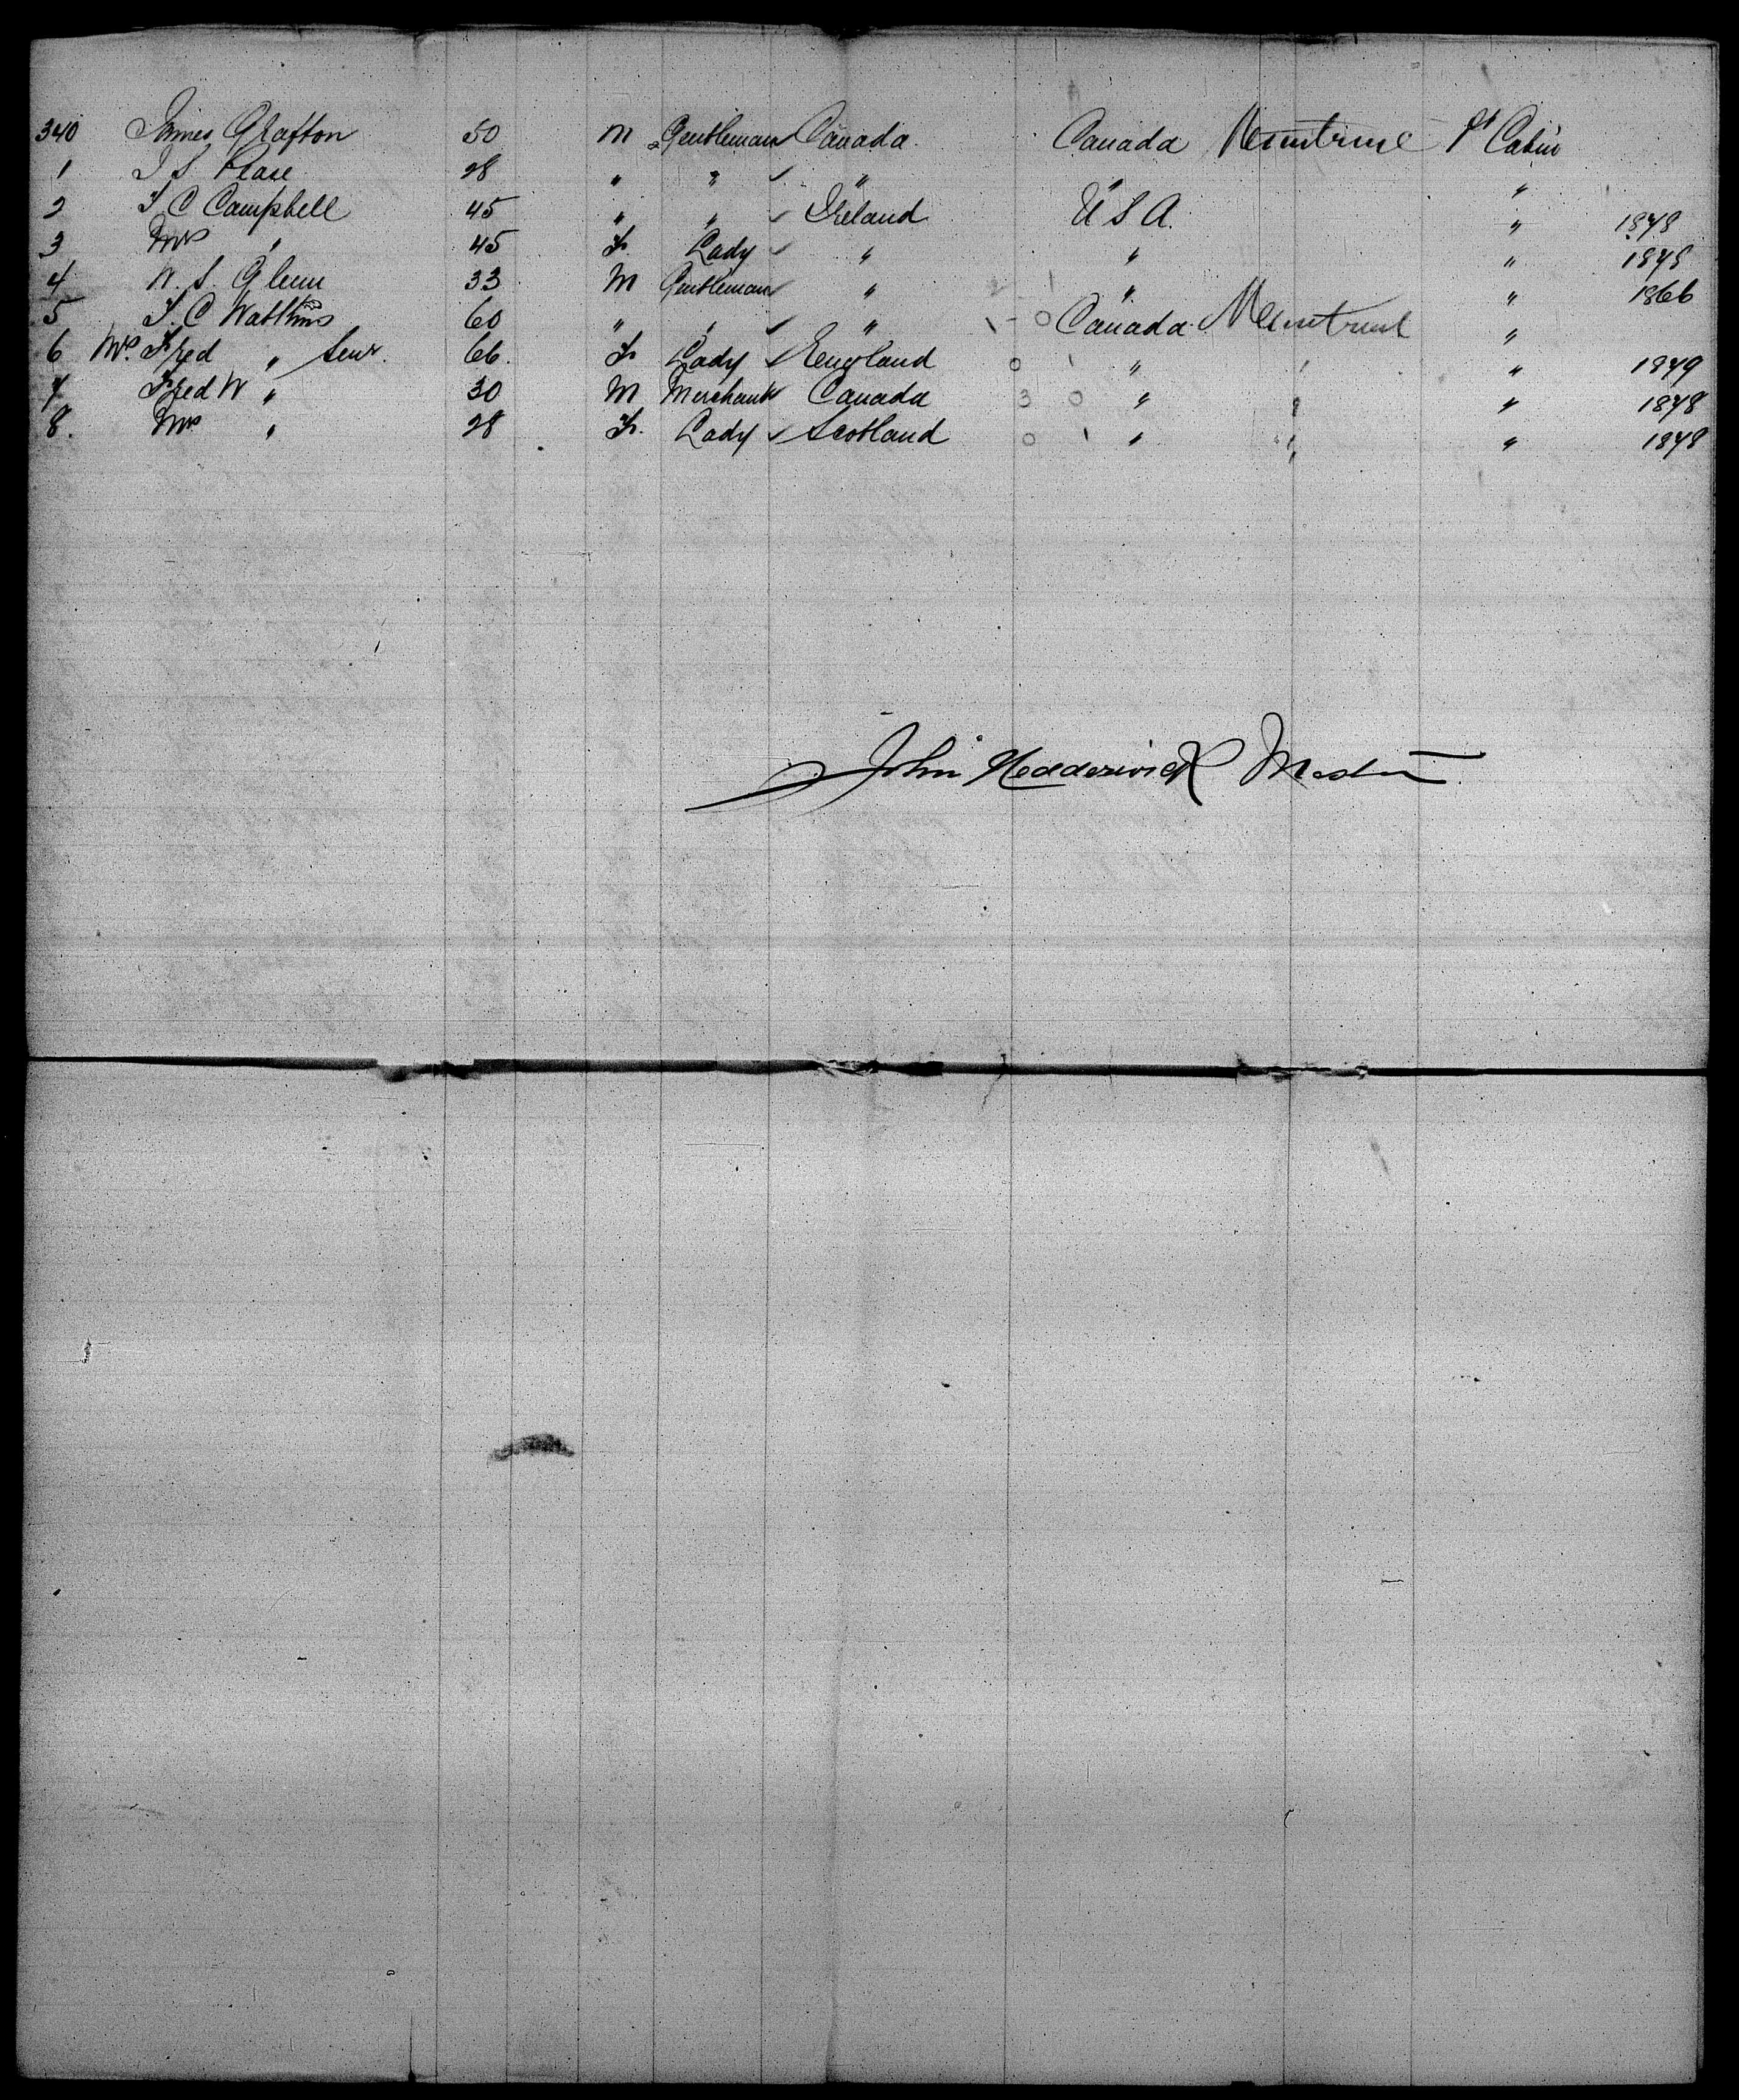 340 James Grafton 50 M Gentleman Canada Canada 1st Cabin
1 J S Pease 28 " " " " "
2 J C Campbell 45 " " Ireland U S A. " 1848
3 Mrs " 45 F. Lady " " " 1848
4 W. S. Glenn 33 M Gentleman " " " 1866
5 F. C Watkins 60 " " " Canada "
6 Mrs. Fred " Senr. 66. F Lady England 0 1 " " " 1849
7 Fred W " 30 M Merchant Canada 3 0 " " " 1848
8. Mrs " 28 F. Lady Scotland 0 1 " " " 1848
John Hedderwick Master